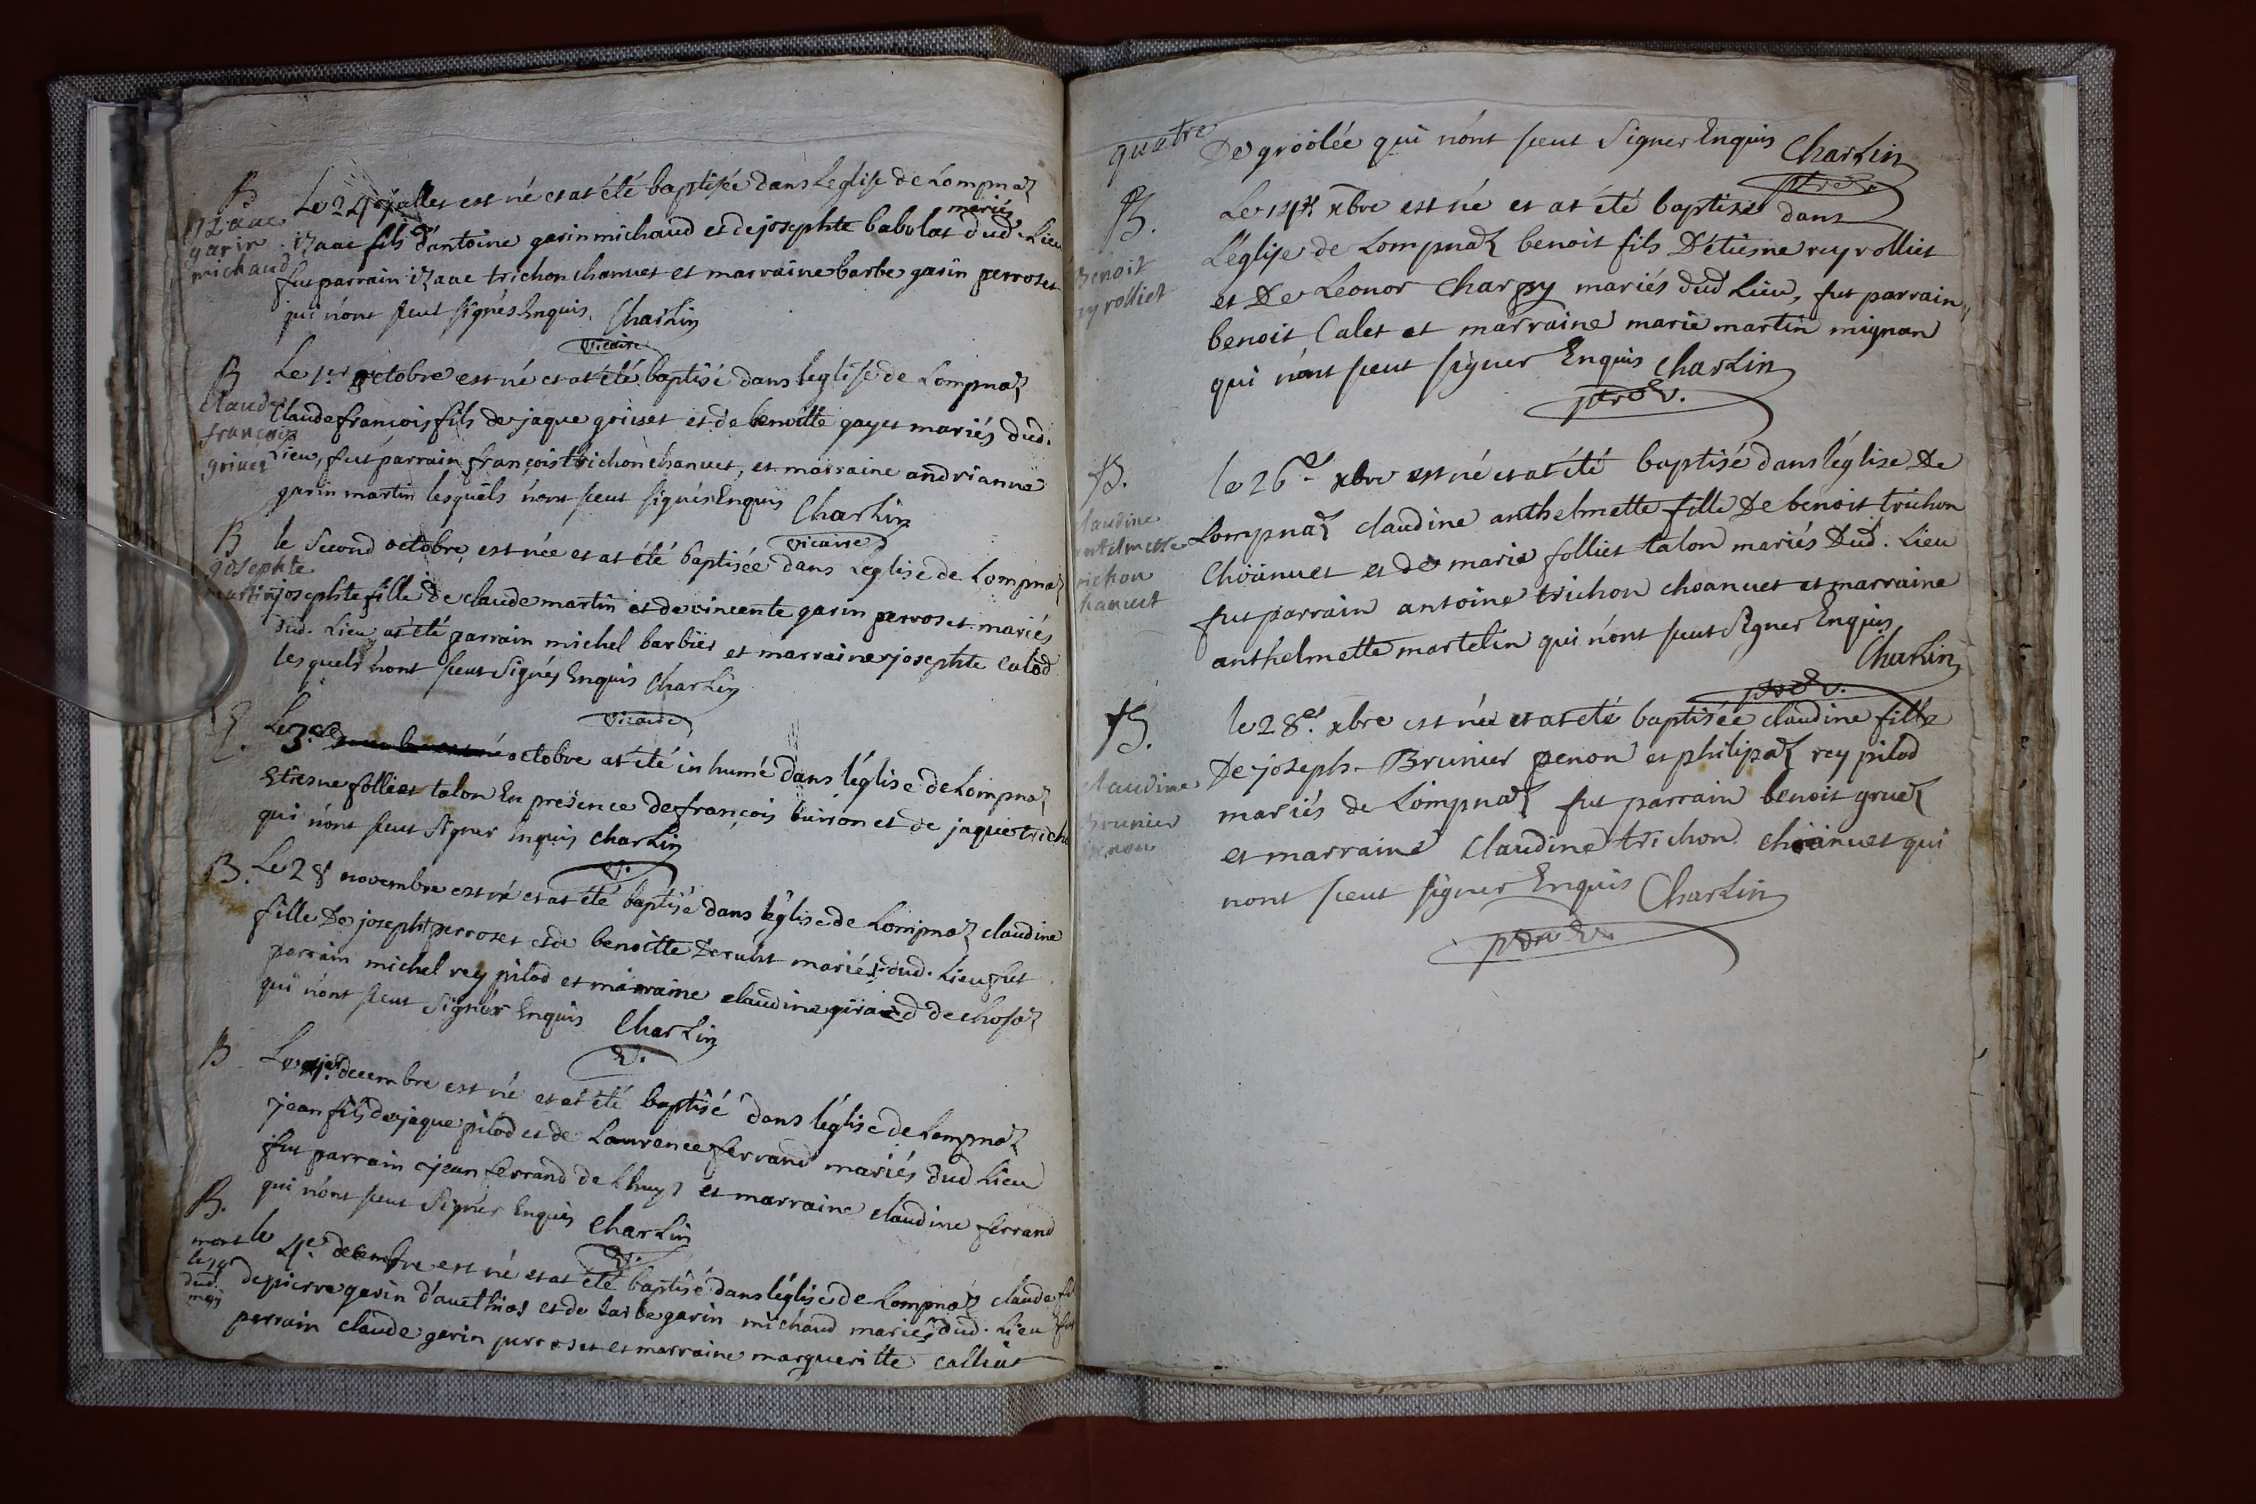 B
izaac
garin
michaud
Le 24 juillet est né et at été baptisée dans Leglise de Lompnaz
mariés
izaac fils d'antoine garin michaud et de josephte babolat dud. Lieu
fut parrain izaac trichon chanuet et marraine barbe garin perroset
qui nónt sceut signés Enquis. Charlin
vicaire
B
claude
françois
grivet
Le 1er octobre est né et at été baptisé dans leglise de Lompnaz
Claude françois fils de jaque grivet et de benoitte gayet mariés dud.
Lieu, fut parrain françois trichon chanuet, et marraine andrianne
garin martin lesquels nont sceut signés Enquis Charlin
vicaire
B
josephte
martin
le Second octobre, est née et at été baptisée dans Léglise de Lompnaz
josephte fille de claude martin et de vincente garin perroset mariés
dud. Lieu at été parrain michel barbier et marraine josephte Calod
lesquels nónt sceut Signés Enquis Charlin
vicaire
Le 3e octobre at été inhumé dans léglise de Lompnaz
Etiesne folliet talon En presence de françois buiron et de jaque trichon
qui nónt sceut Signer Enquis Charlin
v.
B.
Le 28 novembre est né et at été baptisé dans léglise de Lompnaz claudine
fille De joseph perroset et de benoitte Derubt mariés dud. Lieu fut
parrain michel rey pilod et marraine claudine giraud de chosaz
qui nónt sceut Signér Enquis Charlin
v.
B
Le 1er decembre est né et at été baptisé dans léglise de Lompnaz
jean fils de jaque pilod et de Laurence ferrand mariés dud Lieu
fut parrain jean ferrand de Lhuys et marraine claudine ferrand
qui nónt sceut Signér Enquis Charlin
v.
B.
mort
le 19
dud.
moy
le 4e decembre est né et at été baptisé dans léglise de Lompnaz claude fils
de pierre garin d'avethios et de barbe garin michaud mariés dud. Lieu fut
parrain claude garin perroset et marraine margueritte calliet
quatre
De groólée qui nónt sceut Signer Enquis Charlin
ptre v.
B.
Benoit
rey rolliet
Le 14e xbre est né et at été baptisé dans
Léglise de Lompnaz benoit fils D'étiesne rey rolliet
et De Léonor Charpy mariés dud Lieu, fut parrain,
benoit Calet et marraine marie martin mignan
qui nónt sceut signer Enquis Charlin
ptre v.
B.
claudine
anthelmette
trichon
chanuet
le 26e xbre est né et at été baptisé dans léglise De
Lompnaz claudine anthelmette fille De benoit trichon
Choanuet et de marie folliet talon mariés Dud. Lieu
fut parrain antoine trichon choanuet et marraine
anthelmette martelin qui nónt sceut Signer Enquis
Charlin
ptre v.
B.
claudine
brunier
penon
le 28e. xbre est née et at été baptisée claudine fille
De joseph Brunier penon et philipaz rey pilod
mariés de Lompnaz fut parrain benoit gruaz
et marraine claudine trichon choanuet qui
nont sceut signer Enquis Charlin
ptre v.